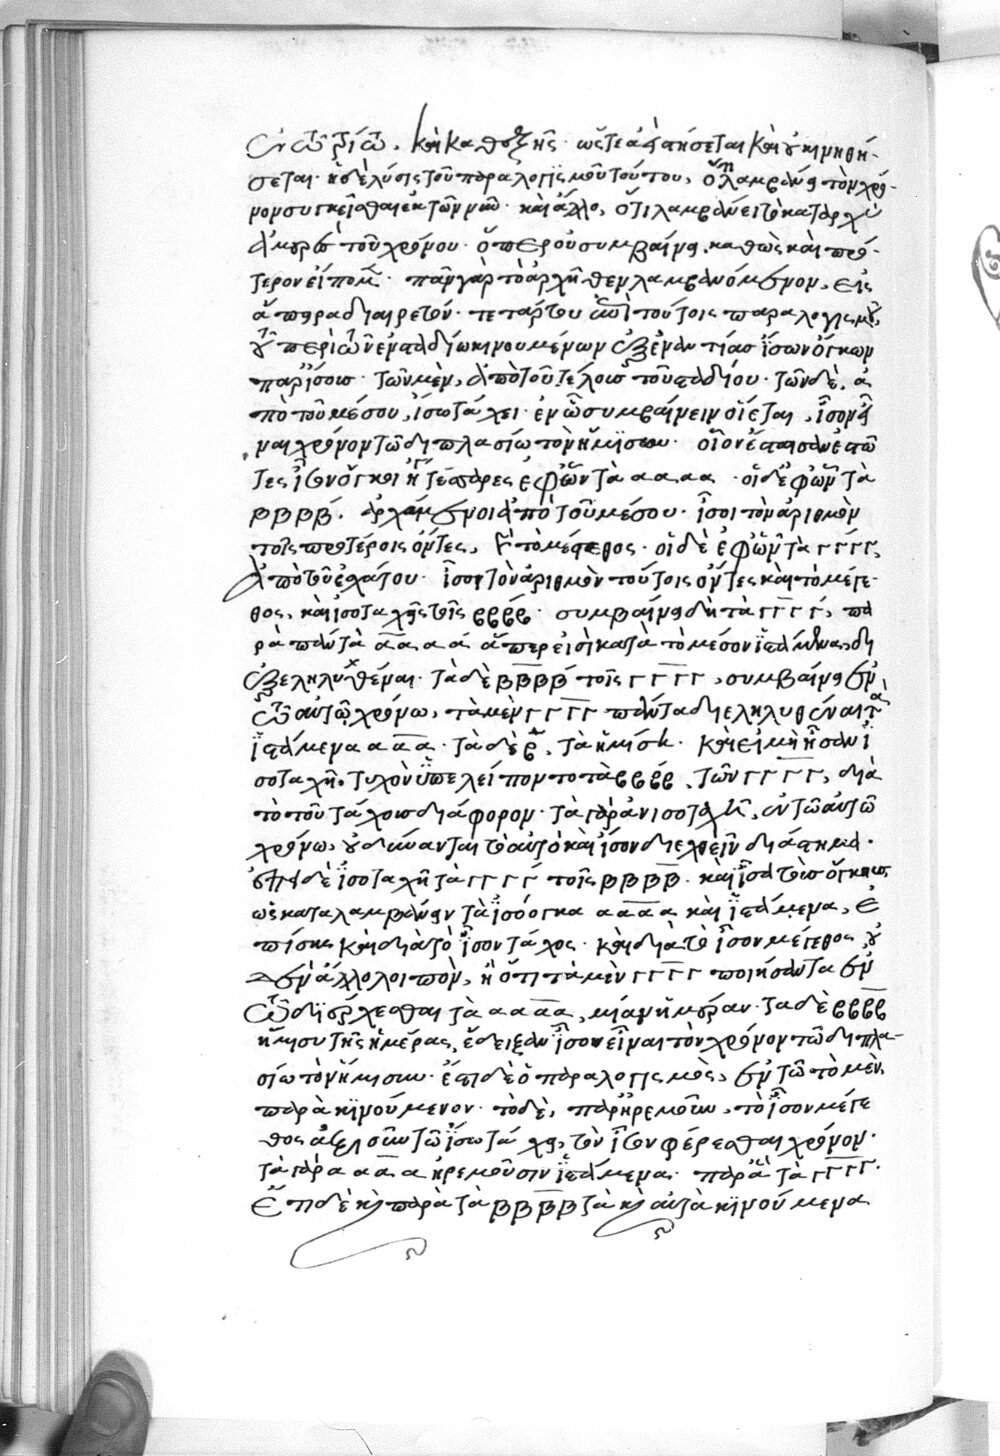 ἐν τῷ τρίτῳ. καὶ καθεξῆς· ὥστε ἀπατήσεται καὶ οὐ κινηθή-
σεται· ἡ δὲ λύσις τοῦ παραλογισμοῦ τούτου, ὅτι λαμβάνει τὸν χρό-
νον συγκεῖσθαι ἐκ τῶν νῦν· καὶ ἄλλο, ὅτι λαμβάνει τὸ κατ' ἀρχὴν
τοῦ χρόνου· ὅπερ οὐ συμβαίνει, καθὼς καὶ πρό-
τερον εἴπομεν· πᾶν γὰρ τὸ ἀρχῆθεν λαμβανόμενον, εἰς
ἄπειρα διαιρετόν· τετάρτου ἐπὶ τούτοις παραλογισμοῦ,
τοῦ περὶ τῶν ἐν σταδίῳ κινουμένων ἐξ ἐναντίας ἴσων ὄγκων
παρ' ἴσοις· τῶν μὲν, ἀπὸ τοῦ τέλους τοῦ σταδίου· τῶν δὲ, ἀ-
πὸ τοῦ μέσου, ἴσῳ τάχει· ἐν ᾧ συμβαίνειν οἴεται, ἴσον εἶ-
ναι χρόνον τῷ διπλασίῳ τὸν ἥμισυν· οἷον ἔστωσαν ἑστῶ-
τες ἴσοι ὄγκοι τέσσαρες ἐφ' ὧν τὰ α α α α· οἱ δὲ ἐφ' ὧν τὰ
β β β β. ἀρχόμενοι ἀπὸ τοῦ μέσου· ἴσοι τὸν ἀριθμὸν
τοῖς προτέροις ὄντες, καὶ τὸ μέγεθος· οἱ δὲ ἐφ' ὧν τὰ γ γ γ γ,
ἀπὸ τοῦ ἐσχάτου· ἴσοι τὸν ἀριθμὸν τούτοις ὄντες καὶ τὸ μέγε-
θος, καὶ ἰσοταχεῖς τοῖς β β β β· συμβαίνει δὴ τὰ γ γ γ γ, πα-
ρὰ πάντα α α α α ἅπερ εἰσὶ κατὰ τὸ μέσον ἱστάμενα, δι
ἐξεληλυθέναι· τὰ δὲ β β β β τοῖς γ γ γ γ, συμβαίνει ἐν
τῷ αὐτῷ χρόνῳ, τὰ μὲν γ γ γ γ πάντα διεληλυθέναι τὰ
ἱστάμενα α α α· τὰ δὲ β, τὰ ἡμίση. καὶ εἰ μὴ ἦσαν ἰ-
σοταχῆ, τυχὸν ὑπελείποντο τὰ β β β β, τῶν γ γ γ γ, διὰ
τὸ τοῦ τάχους διάφορον· τὰ γὰρ ἀνισοταχῆ, ἐν τῷ αὐτῷ
χρόνῳ, οὐ δύνανται τὸ αὐτὸ καὶ ἴσον διελθεῖν διάστημα·
ἐπεὶ δὲ ἰσοταχῆ τὰ γ γ γ γ τοῖς β β β β. καὶ ἴσα τοὺς ὄγκους,
ὡς καταλαμβάνειν τὰ ἰσόογκα α α α α καὶ ἱστάμενα, ἐ-
πίσης καὶ διὰ τὸ ἴσον τάχος· καὶ διὰ τὸ ἴσον μέγεθος, οὐ-
δὲν ἄλλο λοιπὸν, ἢ ὅτι τὰ μὲν γ γ γ γ ποιήσαντα ἐν
τῷ διέρχεσθαι τὰ α α α α, μίαν ἡμέραν· τὰ δὲ β β β β
ἥμισυ τῆς ἡμέρας, ἔδειξαν ἴσον εἶναι τὸν χρόνον τῷ διπλα-
σίῳ τὸν ἥμισυν· ἔστι δὲ ὁ παραλογισμὸς, ἐν τῷ τὸ μὲν,
παρὰ κινούμενον· τὸ δὲ, παρ' ἠρεμοῦν, τὸ ἴσον μέγε-
θος ἀξιοῦν τῷ ἴσῳ τάχει, τὸν ἴσον φέρεσθαι χρόνον·
τὰ γὰρ α α α α ἠρεμοῦσιν ἱστάμενα· παρ' ἃ τὰ γ γ γ γ.
ἔτι δὲ καὶ παρὰ τὰ β β β β τὰ καὶ αὐτὰ κινούμενα